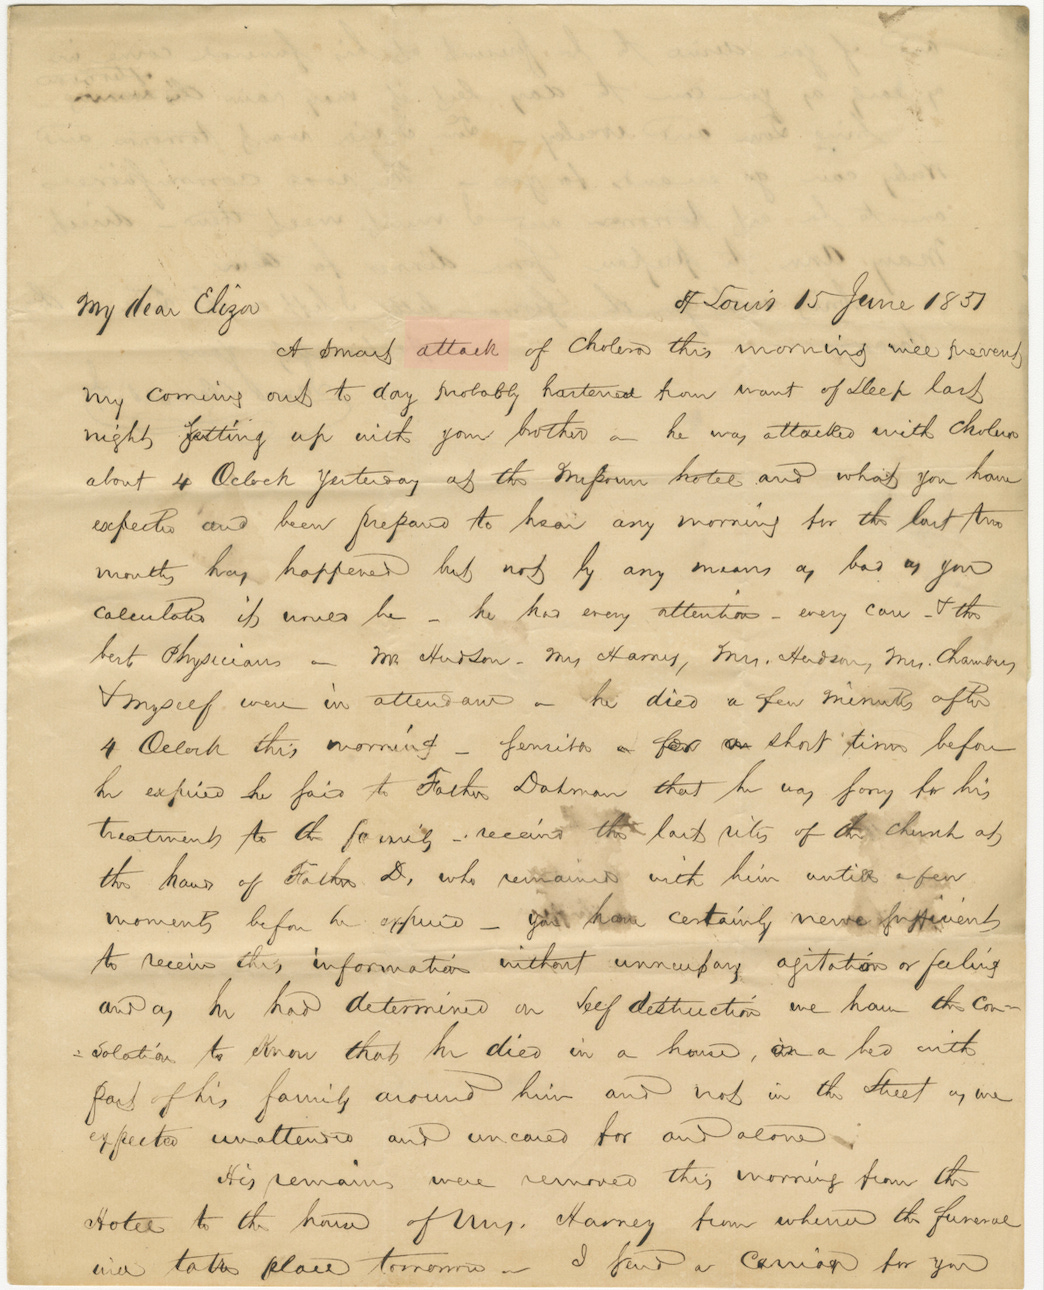 My dear Eliza St Louis 15 June 1851
A smart attack of Cholera this morning will prevent
my coming out to day probably hastened from want of sleep last
night, sitting up with your brother — he was attacked with Cholera
about 4 Oclock Yesterday at the Missouri hotel and what you have
expected and been prepared to hear any morning for the last two
months has happened but not by any means as bad as you
calculated it would be — he had every attention — every care — & the
best Physicians — Mr Hudson — Mrs Harney, Mrs. Hudson, Mrs. Chambers,
& myself were in attendance — he died a few minutes after
4 Oclock this morning — sensible a short time before
he expired he said to Father Dahman that he was sorry for his
treatment to the family — received the last rites of the church at
the hands of Father D, who remained with him until a few
moments before he expired — you have certainly nerve sufficient
to receive this information without unnecessary agitation or feeling
and as he had determined on self destruction we have the con-
=solation to know that he died in a house, in a bed with
part of his family around him and not in the street as we
expected unattended and uncared for and alone.
His remains were removed this morning from the
Hotel to the house of Mrs. Harney from whence the funeral
will take place tomorrow — I send a carriage for you